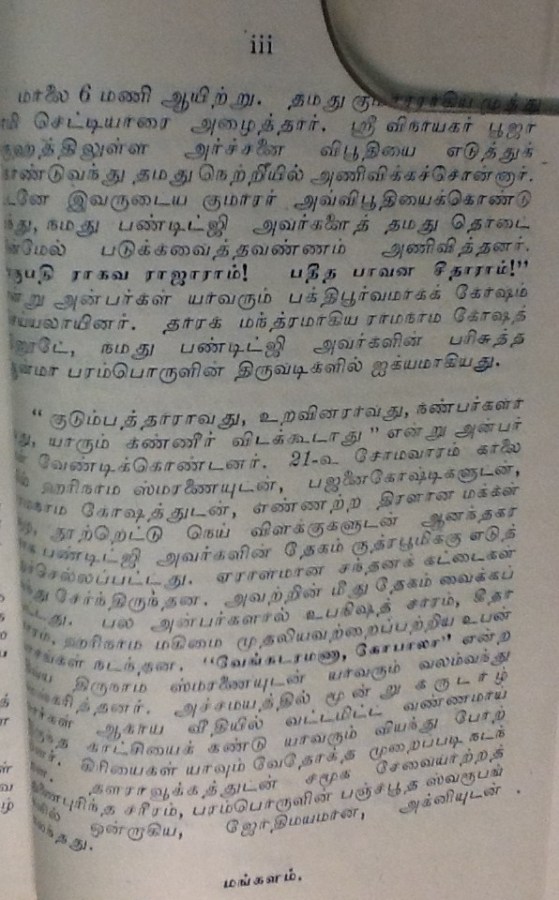 iii
மாலை 6 மணி ஆயிற்று. தமது குமாரராகிய முத்து
செட்டியாரை அழைத்தார். ஸ்ரீ விநாயகர் பூஜா
அர்ச்சனை விபூதியை எடுத்துக்
தமது நெற்றியில் அணிவிக்கச்சொன்னார்.
இவருடைய குமாரர் அவ்விபூதியைக்கொண்டு
நமது பண்டிட்ஜி அவர்களைத் தமது தொடை
படுக்கவைத்தவண்ணம் அணிவித்தனர்.
ராகவ ராஜாராம்! பதித பாவன சீதாராம்!”
அன்பர்கள் யாவரும் பக்திபூர்வமாகக் கோஷம்
தாரக மந்த்ரமாகிய ராமநாம கோஷத்
நமது பண்டிட்ஜி அவர்களின் பரிசுத்த
பரம்பொருளின் திருவடிகளில் ஐக்யமாகியது.
“குடும்பத்தாராவது, உறவினராவது, நண்பர்களா
யாரும் கண்ணீர் விடக்கூடாது” என்று அன்பர்
வேண்டிக்கொண்டனர். 21-உ சோமவாரம் காலை
ஹரிநாம ஸ்மரணையுடன், பஜனைகோஷ்டிகளுடன்,
கோஷத்துடன், எண்ணற்ற திரளான மக்கள்
நூற்றெட்டு நெய் விளக்குகளுடன் ஆனந்தகா
பண்டிட்ஜி அவர்களின் தேகம் ருத்ரபூமிக்கு எடுத்
ஏராளமான சந்தனக் கட்டைகள்
சேர்ந்திருந்தன. அவற்றின் மீது தேகம் வைக்கப்
பல அன்பர்களால் உபநிஷத் சாரம், கீதா
ஹரிநாம மகிமை முதலியவற்றைப்பற்றிய உபன்
நடந்தன. “வேங்கடரமணா, கோபாலா” என்ற
திருநாம ஸ்மரணையுடன் யாவரும் வலம்வந்து
அச்சமயத்தில் மூன்று கருடாழ்
ஆகாய வீதியில் வட்டமிட்ட வண்ணமாய்
காட்சியைக் கண்டு யாவரும் வியந்து போற்
கிரியைகள் யாவும் வேதோக்த முறைப்படி நடந்
தளராவூக்கத்துடன் சமூக சேவையாற்றத்
சரீரம், பரம்பொருளின் பஞ்சபூத ஸ்வரூபங்
ஒன்றாகிய, ஜோதிமயமான, அக்னியுடன்
மங்களம்.